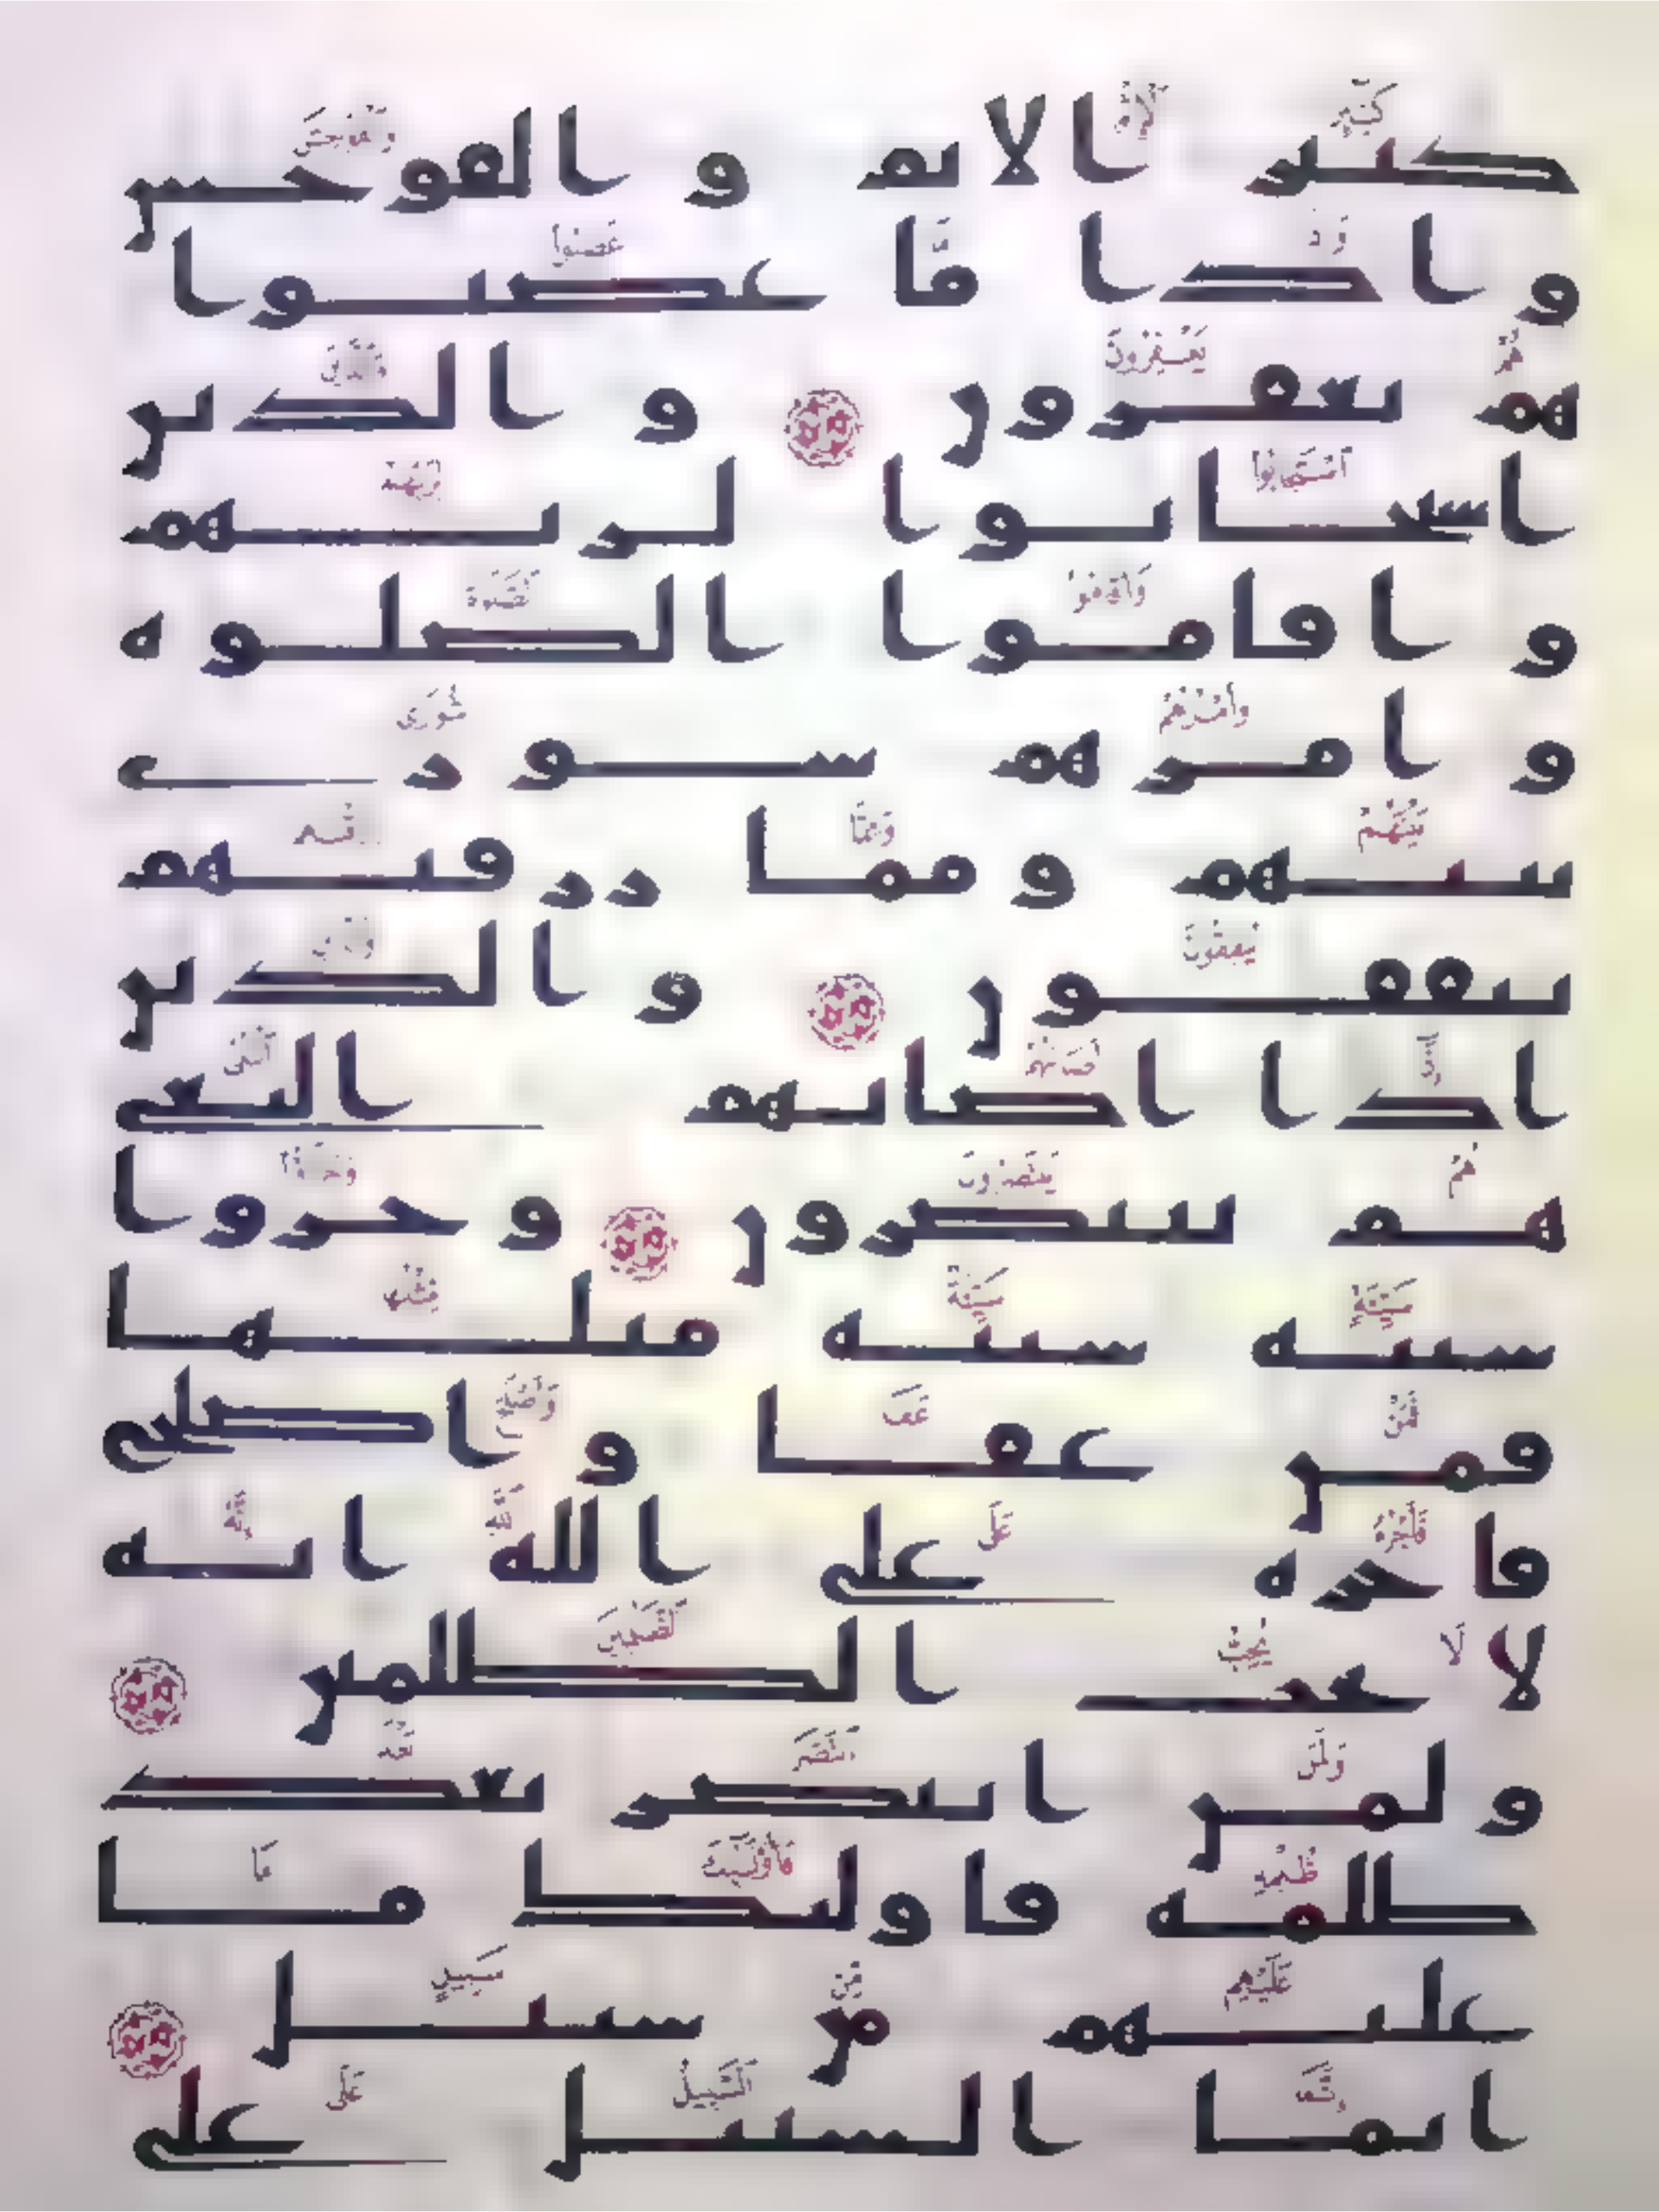 كبير الاثم و الفوحش
و اذا ما غضبوا
هم يغفرون و الذين
استجابوا لربهم
و اقاموا الصلوة
و امرهم شورى
بينهم و مما رزقنهم
ينفقون و الذين
اذا اصابهم البغى
هم ينتصرون و جزوا
سيئة سيئة مثلها
فمن عفا و اصلح
فاجره على الله انه
لا يحب الظلمين
و لمن انتصر بعد
ظلمه فاولئك ما
عليهم من سبيل
انما السبيل على